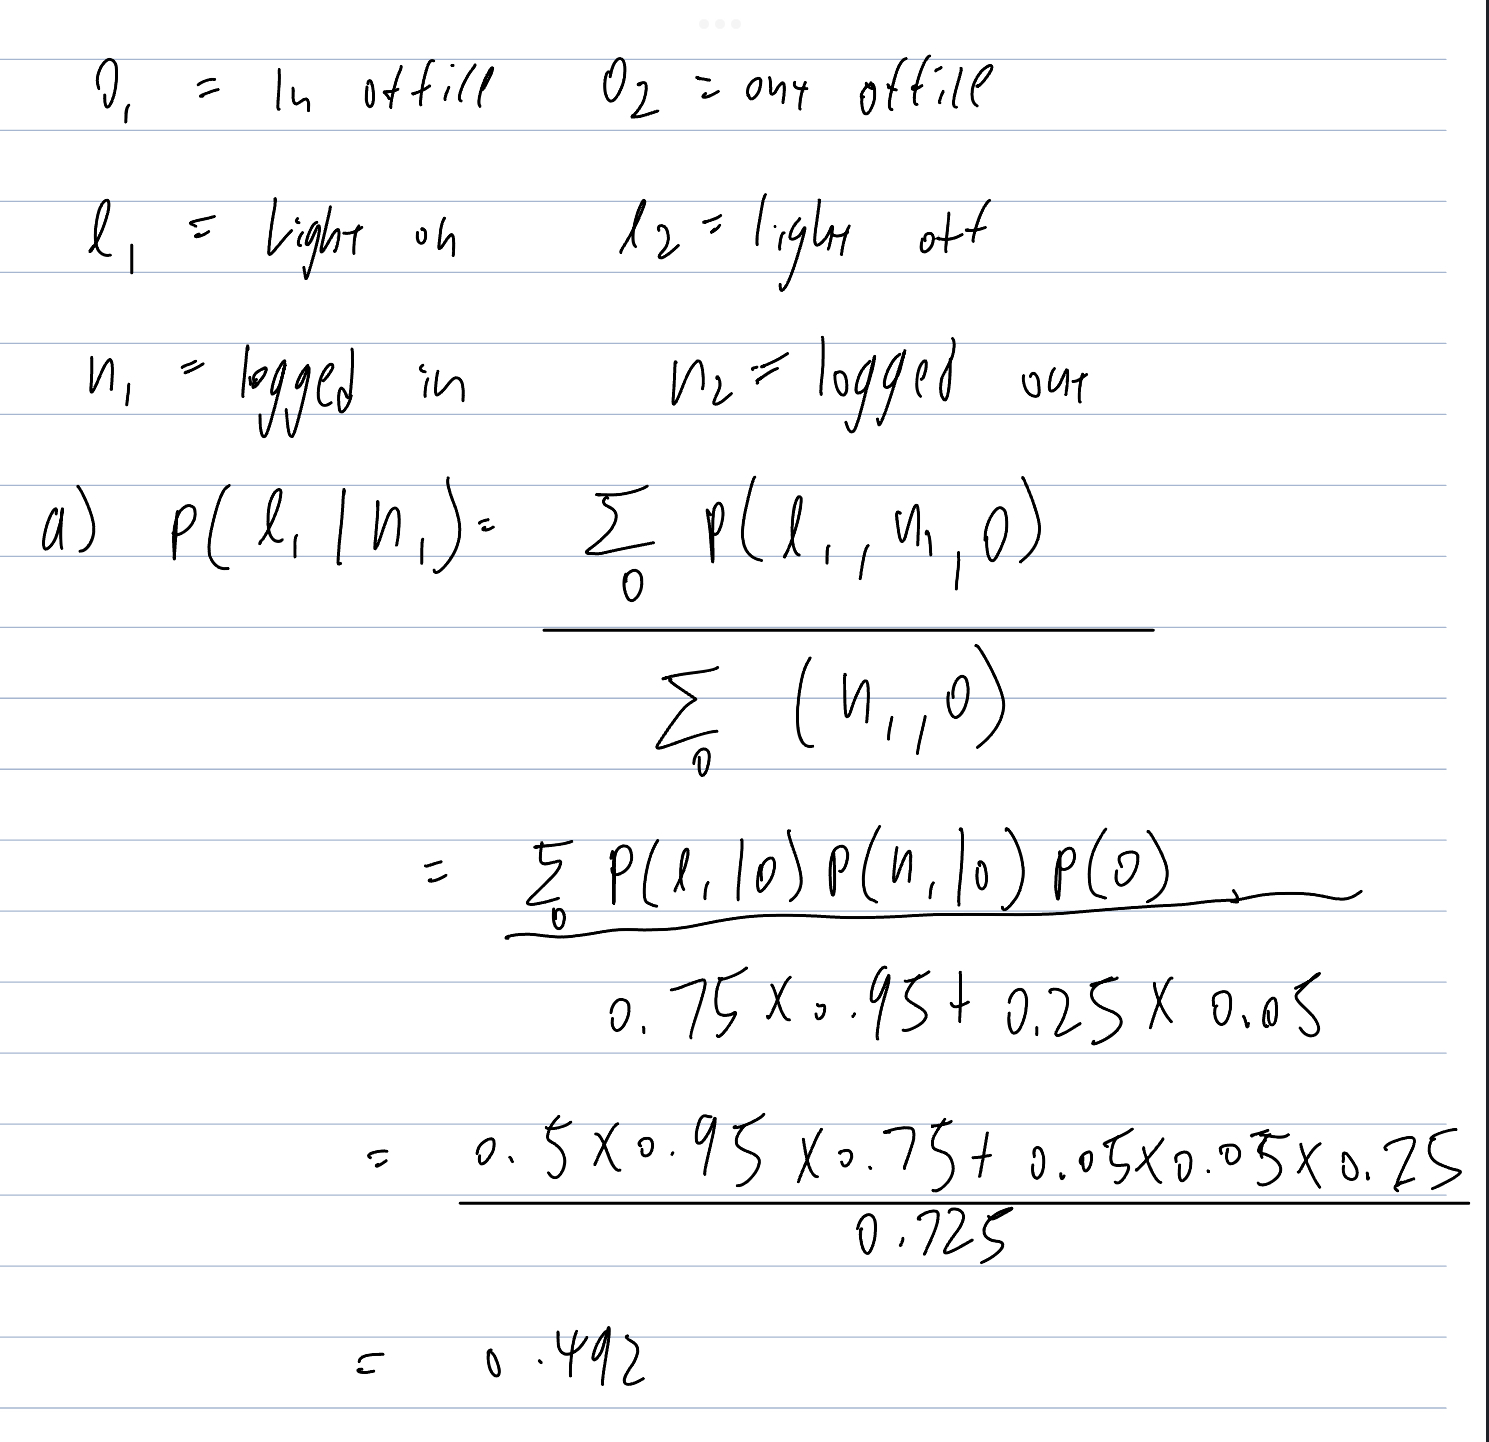 O₁ = In office O₂ = out office
l₁ = Light on l₂ = light off
n₁ = logged in n₂ = logged out
a) P(l₁|n₁) = Σ_O P(l₁, n₁, O)
Σ_O (n₁, O)
= Σ_O P(l₁|O) P(n₁|O) P(O)
0.75 × 0.95 + 0.25 × 0.05
= 0.5 × 0.95 × 0.75 + 0.05 × 0.05 × 0.25
0.725
= 0.492